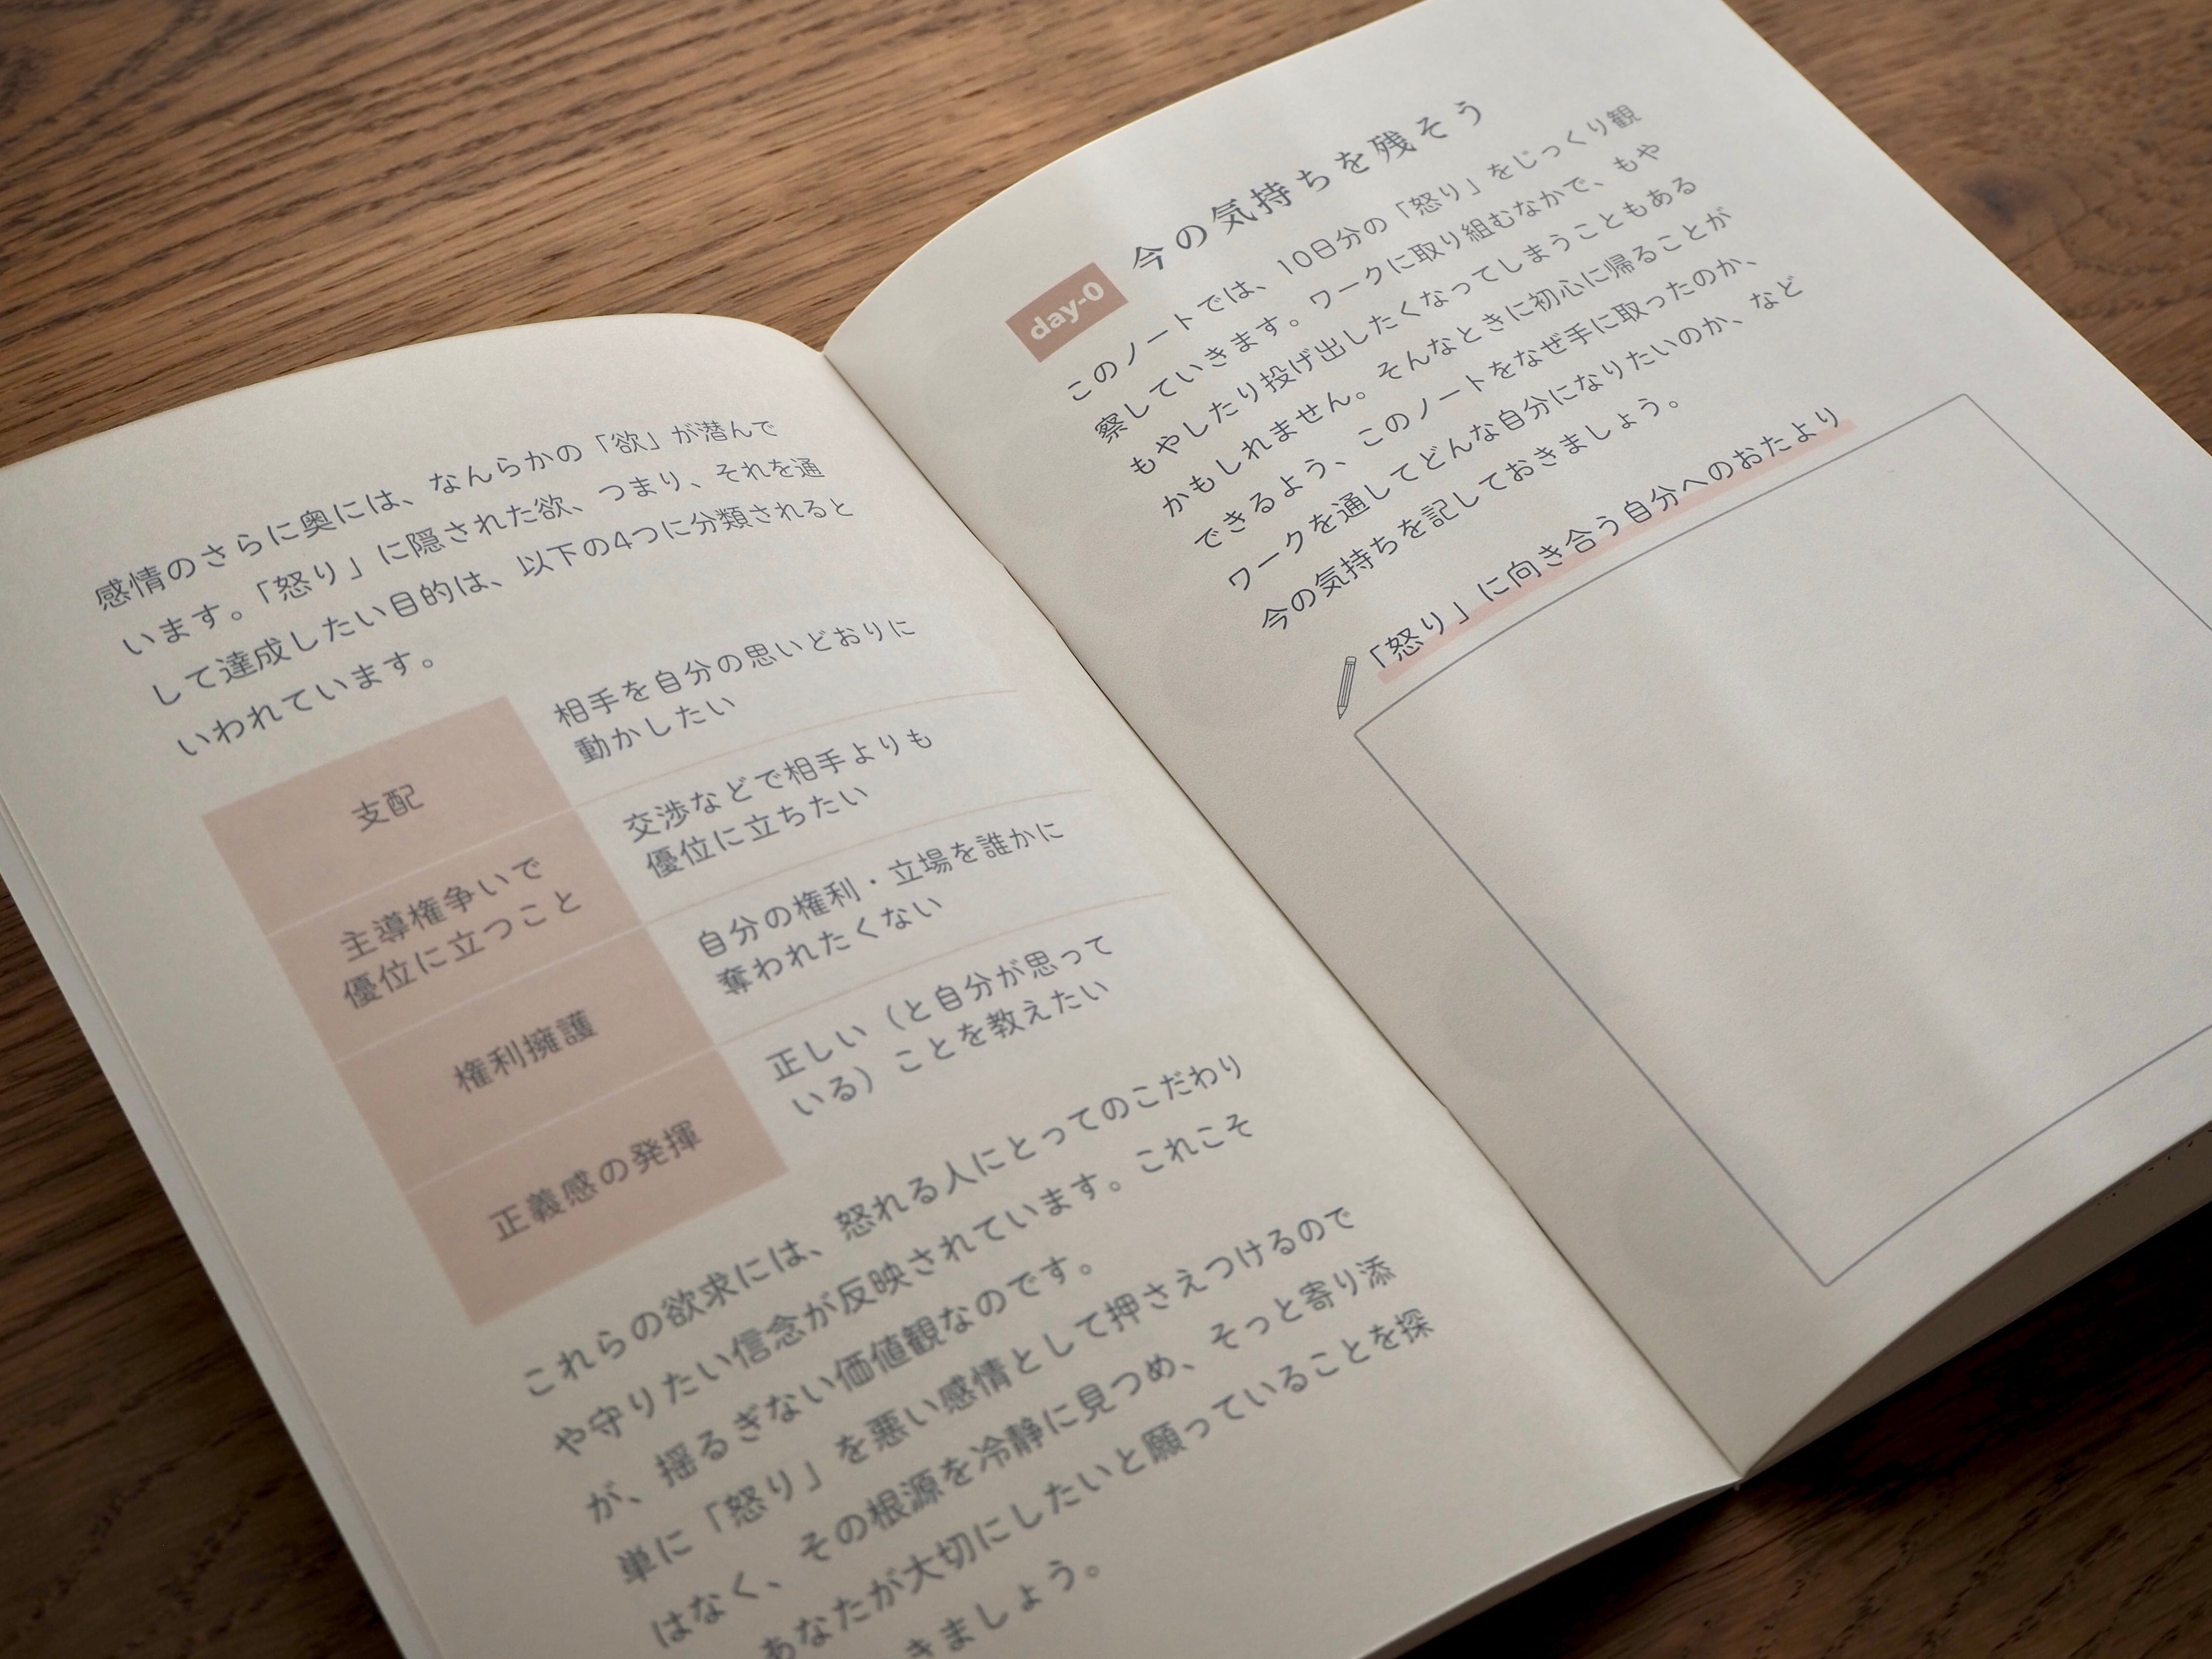 感情のさらに奥には、なんらかの「欲」が潜んで
います。「怒り」に隠された欲、つまり、それを通
して達成したい目的は、以下の4つに分類されると
いわれています。
支配
相手を自分の思いどおりに
動かしたい
主導権争いで
優位に立つこと
交渉などで相手よりも
優位に立ちたい
権利擁護
自分の権利・立場を誰かに
奪われたくない
正義感の発揮
正しい（と自分が思って
いる）ことを教えたい
これらの欲求には、怒れる人にとってのこだわり
や守りたい信念が反映されています。これこそ
が、揺るぎない価値観なのです。
単に「怒り」を悪い感情として押さえつけるので
はなく、その根源を冷静に見つめ、そっと寄り添
あなたが大切にしたいと願っていることを探
きましょう。
day-0 今の気持ちを残そう
このノートでは、10日分の「怒り」をじっくり観
察していきます。ワークに取り組むなかで、もや
もやしたり投げ出したくなってしまうこともある
かもしれません。そんなときに初心に帰ることが
できるよう、このノートをなぜ手に取ったのか、
ワークを通してどんな自分になりたいのか、など
今の気持ちを記しておきましょう。
「怒り」に向き合う自分へのおたより